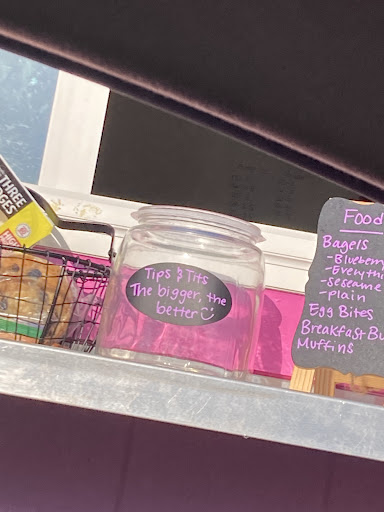 THREE
Tips & Tits
The bigger, the
better
Food
Bagels
-Blueberry
-Everythi
-Seseame
-plain
Egg Bites
Breakfast Bu
Muffins